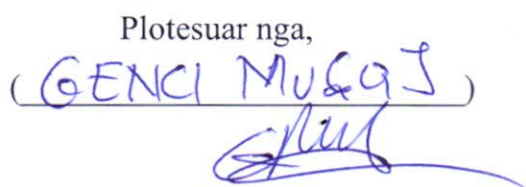 Plotesuar nga,
( GENCI MUÇAJ )